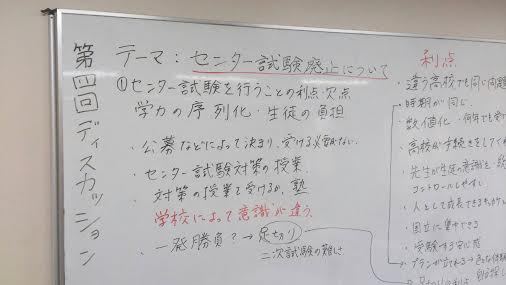 第四回ディスカッション
テーマ：センター試験廃止について
①センター試験を行うことの利点・欠点
学力の序列化・生徒の負担
・公募などによって決まり、受ける必要がない
・センター試験対策の授業
対策の授業を受けるか、塾
学校によって意識が違う
・一発勝負？→足切り
二次試験の難しさ
利点
・違う高校でも同じ問題
・時期が同じ
・数値化・何年でも受け
・高校が手続きをしてく
・先生が生徒の意識を一
コントロールしやすい
・人として成長できる
・国立に集中できる
・受験する安心感
・プランが立てれる→